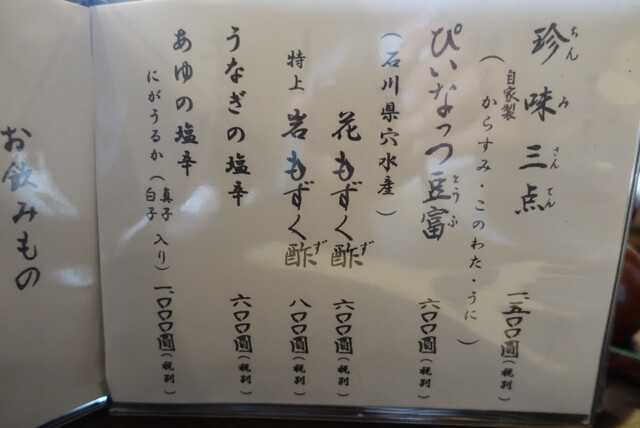 珍味三点 一、五〇〇圓(税別)
ちんみさんてん
(自家製 からすみ・このわた・うに)
ぴいなっつ豆富 六〇〇圓(税別)
とうふ
(石川県穴水産)
花もずく酢 六〇〇圓(税別)
ず
特上 岩もずく酢 八〇〇圓(税別)
ず
うなぎの塩辛 六〇〇圓(税別)
あゆの塩辛 一、〇〇〇圓(税別)
にがうるか(真子 白子 入り)
お飲みもの